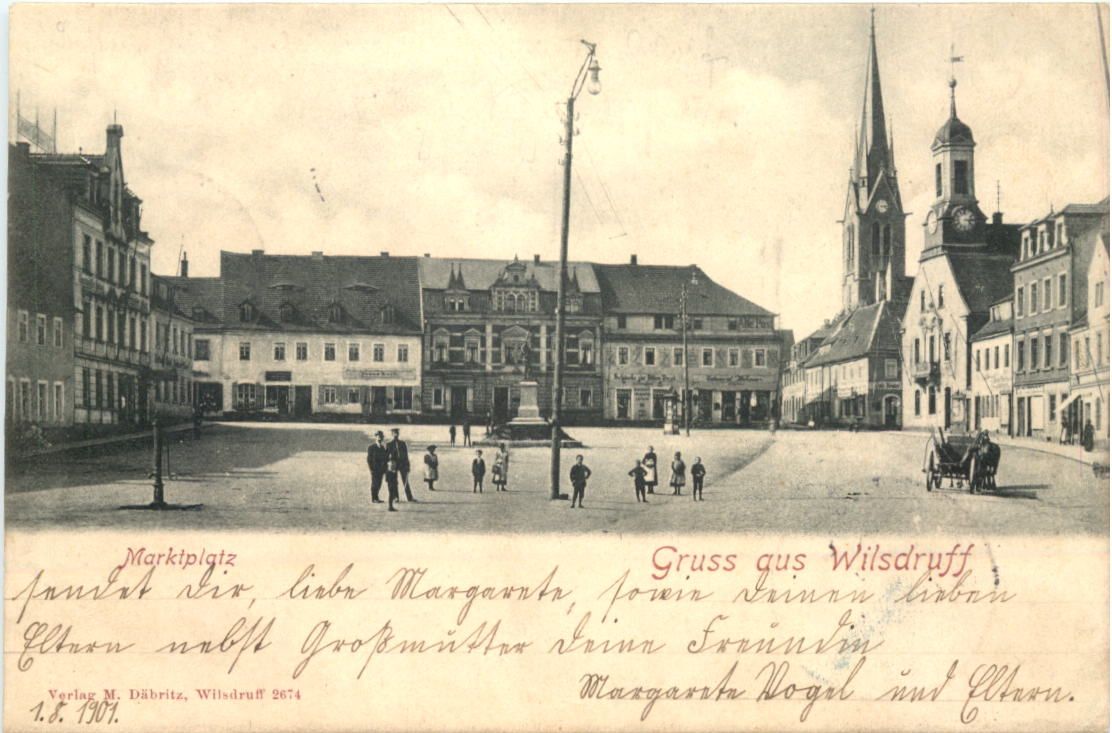 Marktplatz
Gruss aus Wilsdruff
sendet Dir, liebe Margarete, sowie Deinen lieben
Eltern nebst Großmutter Deine Freundin
Margarete Vogel und Eltern.
Verlag M. Däbritz, Wilsdruff 2674
1.8. 1901.